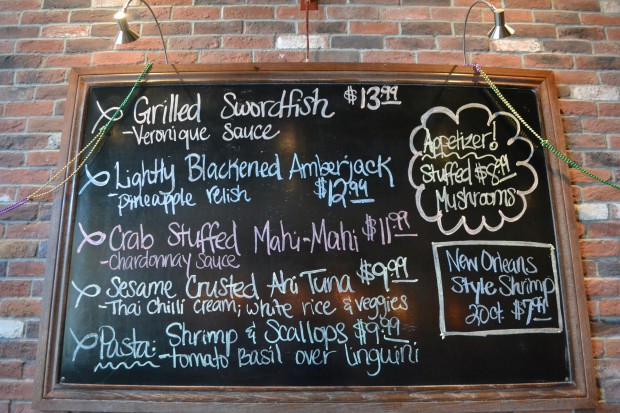 Grilled Swordfish $13.99
-Veronique Sauce
Lightly Blackened Amberjack
-pineapple relish $12.99
Crab Stuffed Mahi-Mahi $11.99
-Chardonnay Sauce
Sesame Crusted Ahi Tuna $9.99
-Thai Chili cream, white rice & veggies
Pasta: Shrimp & Scallops $9.99
-tomato Basil over linguini
Appetizer!
Stuffed $8.99
Mushrooms
New Orleans
Style Shrimp
20ct $7.99